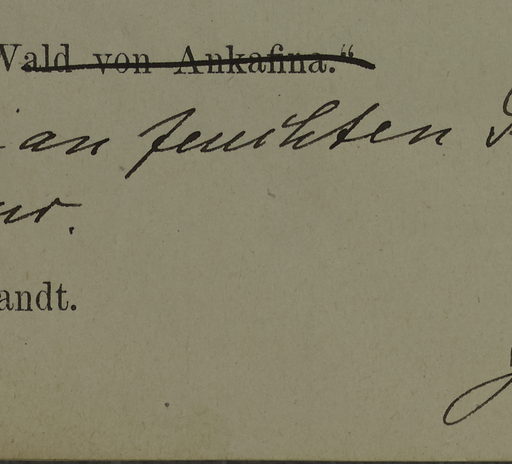 Wald von Ankafina.“
an feuchten
andt.